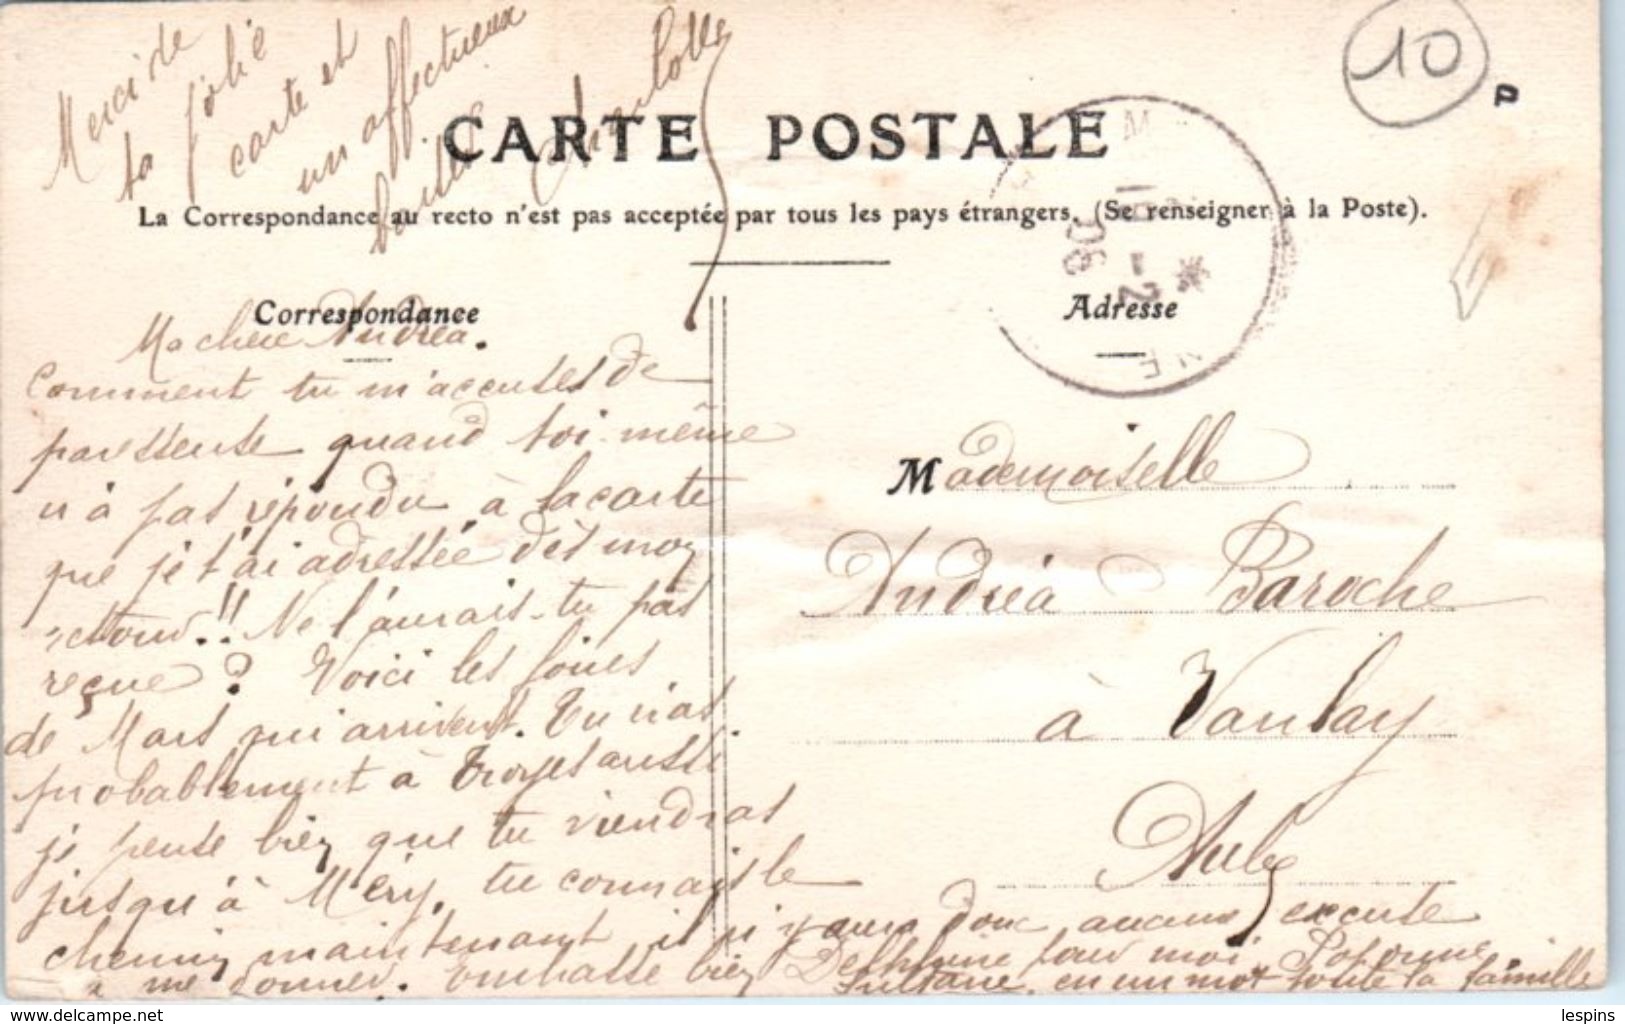 Merci de
ta jolie
carte et
un affectueux
baiser Charlotte
10
P
CARTE POSTALE
La Correspondance au recto n'est pas acceptée par tous les pays étrangers. (Se renseigner à la Poste).
Correspondance
Adresse
2 - 06
Ma chère Andréa.
Comment tu m'accuses de
paresseuse quand toi-même
n'a pas répondu à la carte
que je t'ai adressée dès mon
retour!! Ne l'aurais-tu pas
reçue? Voici les foires
de Mars qui arrivent. Tu iras
probablement à Troyes aussi
je pense bien que tu viendras
jusqu'à Méry, tu connais le
chemin maintenant il n'y aura donc aucune excuse
à me donner. Embrasse bien Delphine pour moi,
Sultane, en un mot toute la famille
Mademoiselle
Andréa Baroche
à Vanlay
Aube
lespins